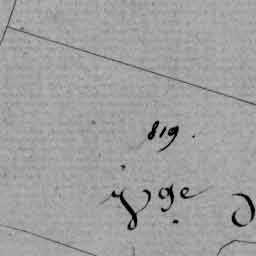 819.
Vge